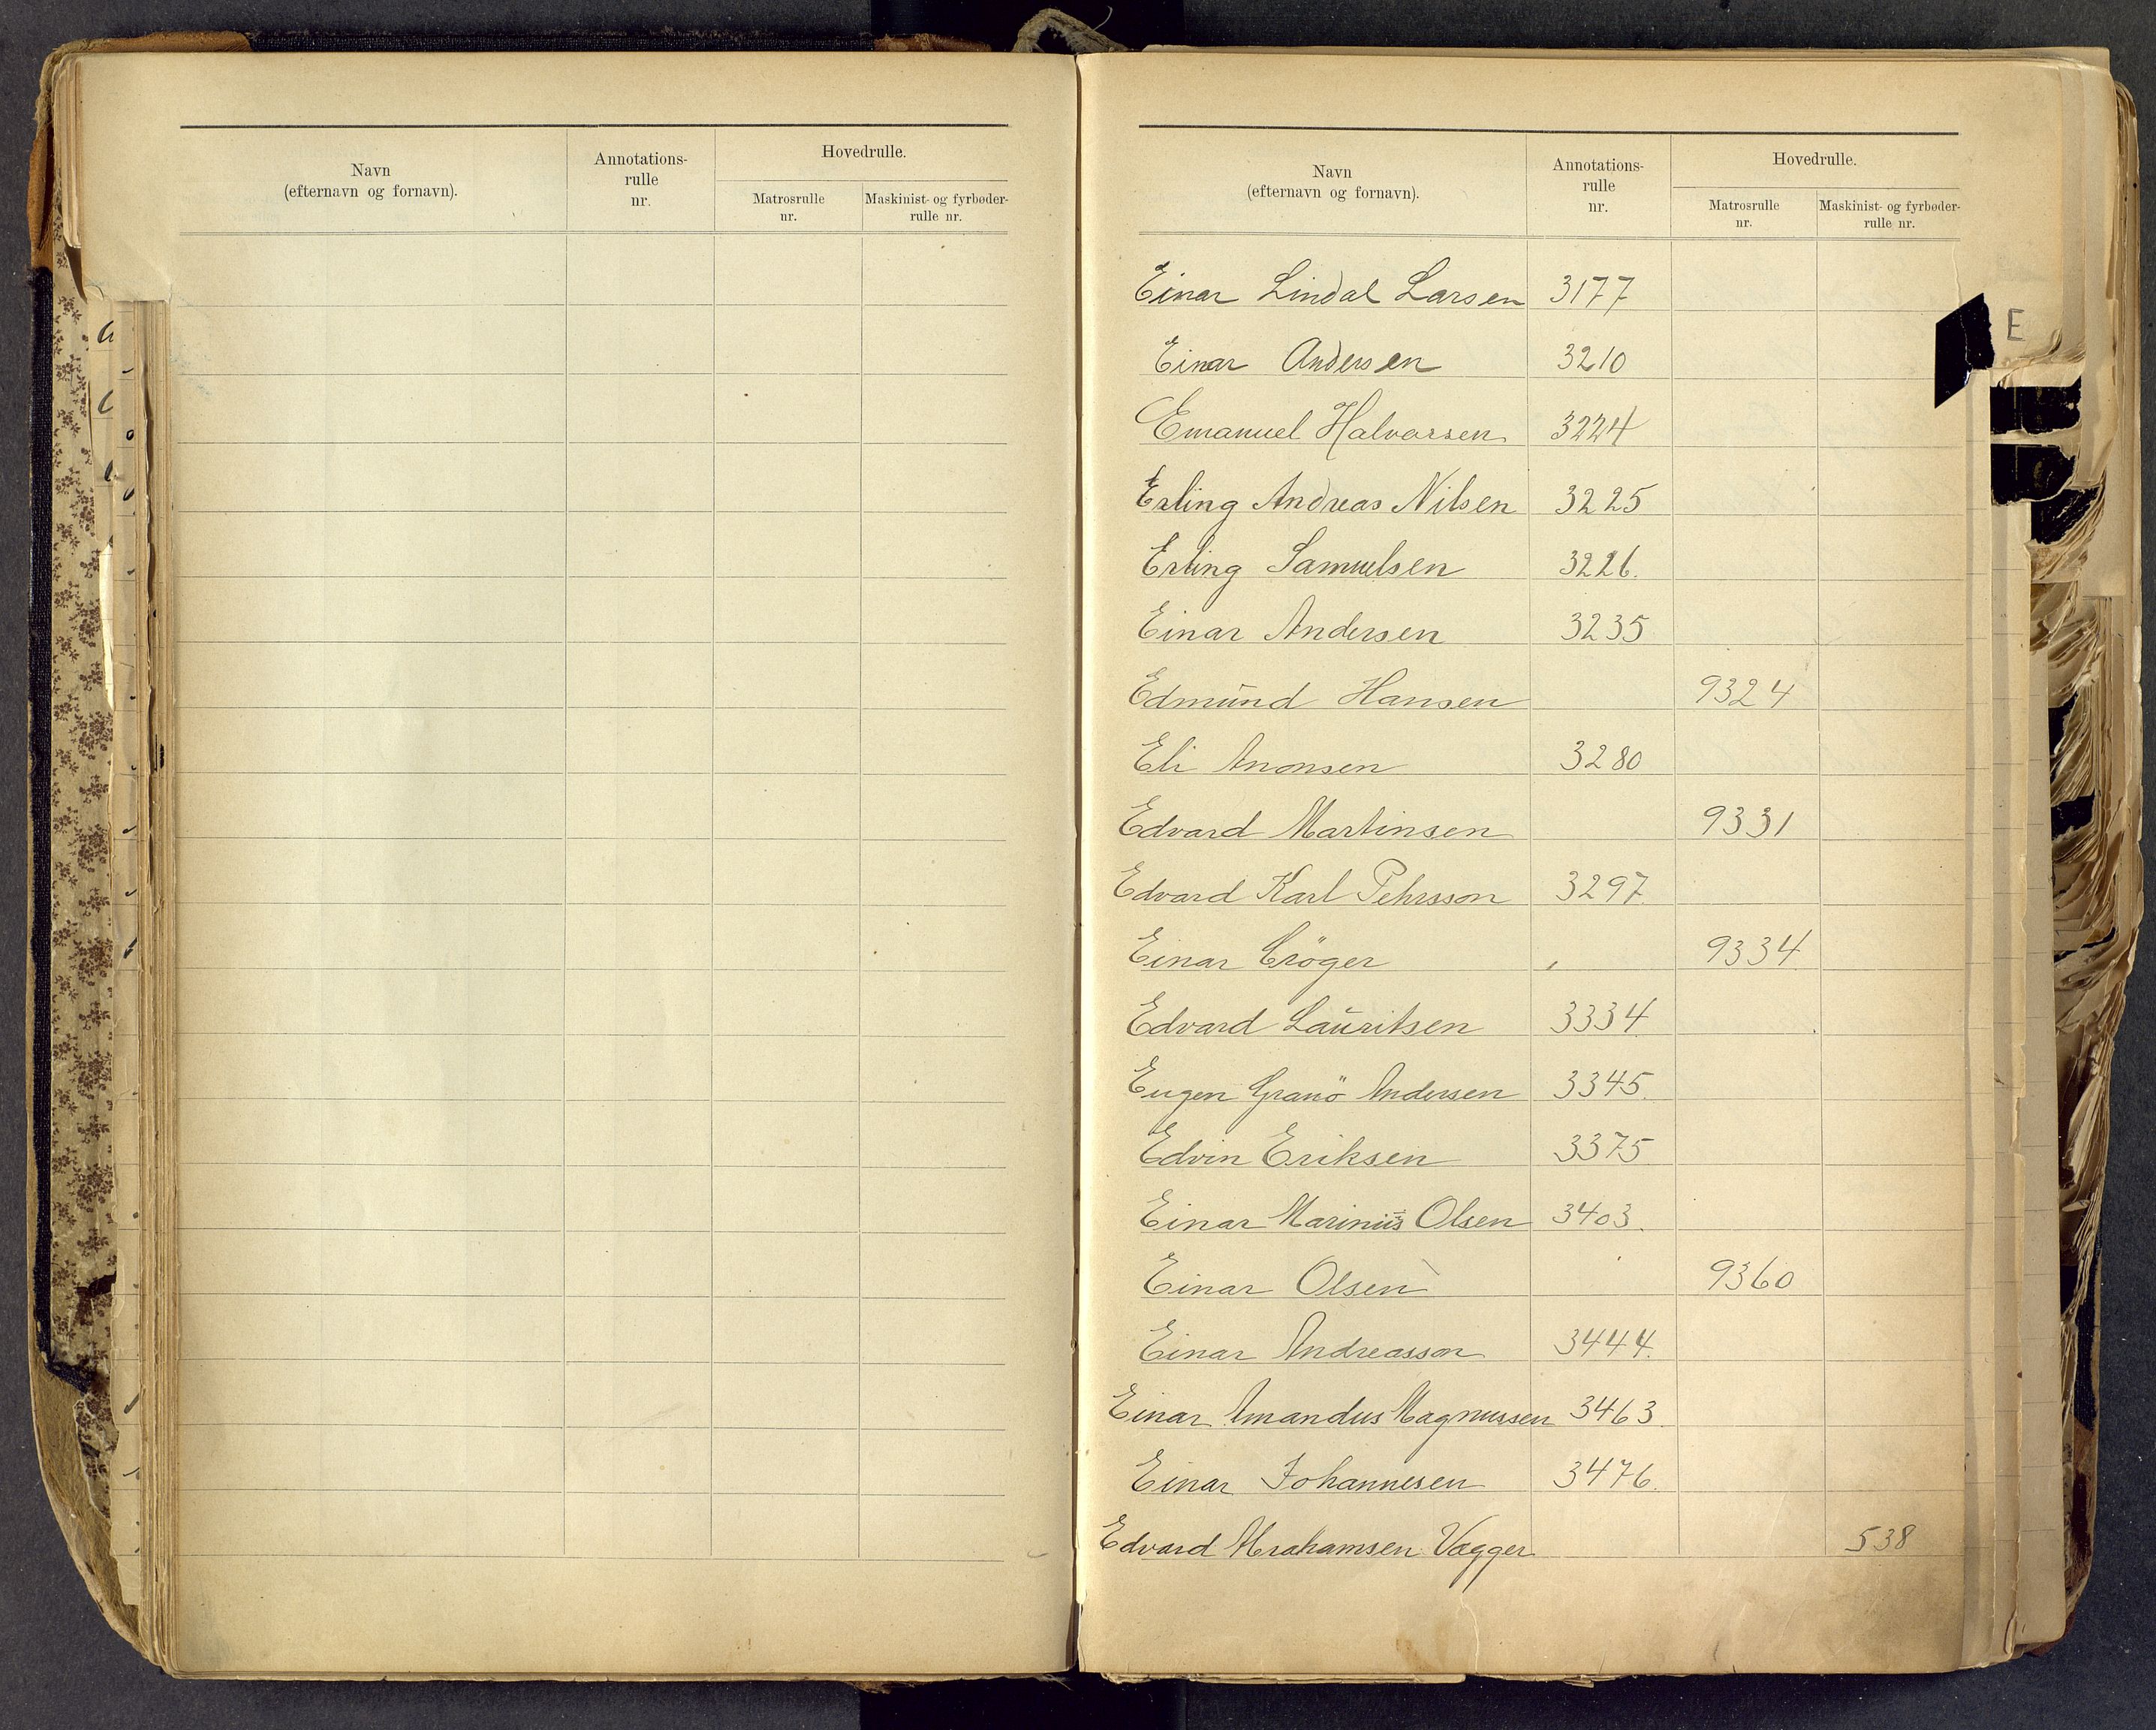 Navn
(efternavn og fornavn).
Annotations-
rulle
nr.
Hovedrulle.
Matrosrulle
nr.
Maskinist- og fyrbøder-
rulle nr.
Navn
(efternavn og fornavn).
Annotations-
rulle
nr.
Hovedrulle.
Matrosrulle
nr.
Maskinist- og fyrbøder-
rulle nr.
E
Einar Lindal Larsen 3177
Einar Andersen 3210
Emanuel Halvorsen 3224
Erling Andreas Nilsen 3225
Erling Samuelsen 3226.
Einar Andersen 3235
Edmund Hansen 9324
Eli Anonsen 3280
Edvard Martinsen 9331
Edvard Karl Pehrsson 3297
Einar Cröger 9334
Edvard Lauritsen 3334
Eugen Granö Andersen 3345.
Edvin Eriksen 3375
Einar Marinius Olsen 3403.
Einar Olsen 9360
Einar Andreasson 3444.
Einar Amandus Magnussen 3463.
Einar Johannesen 3476.
Edvard Abrahamsen Vagger 538